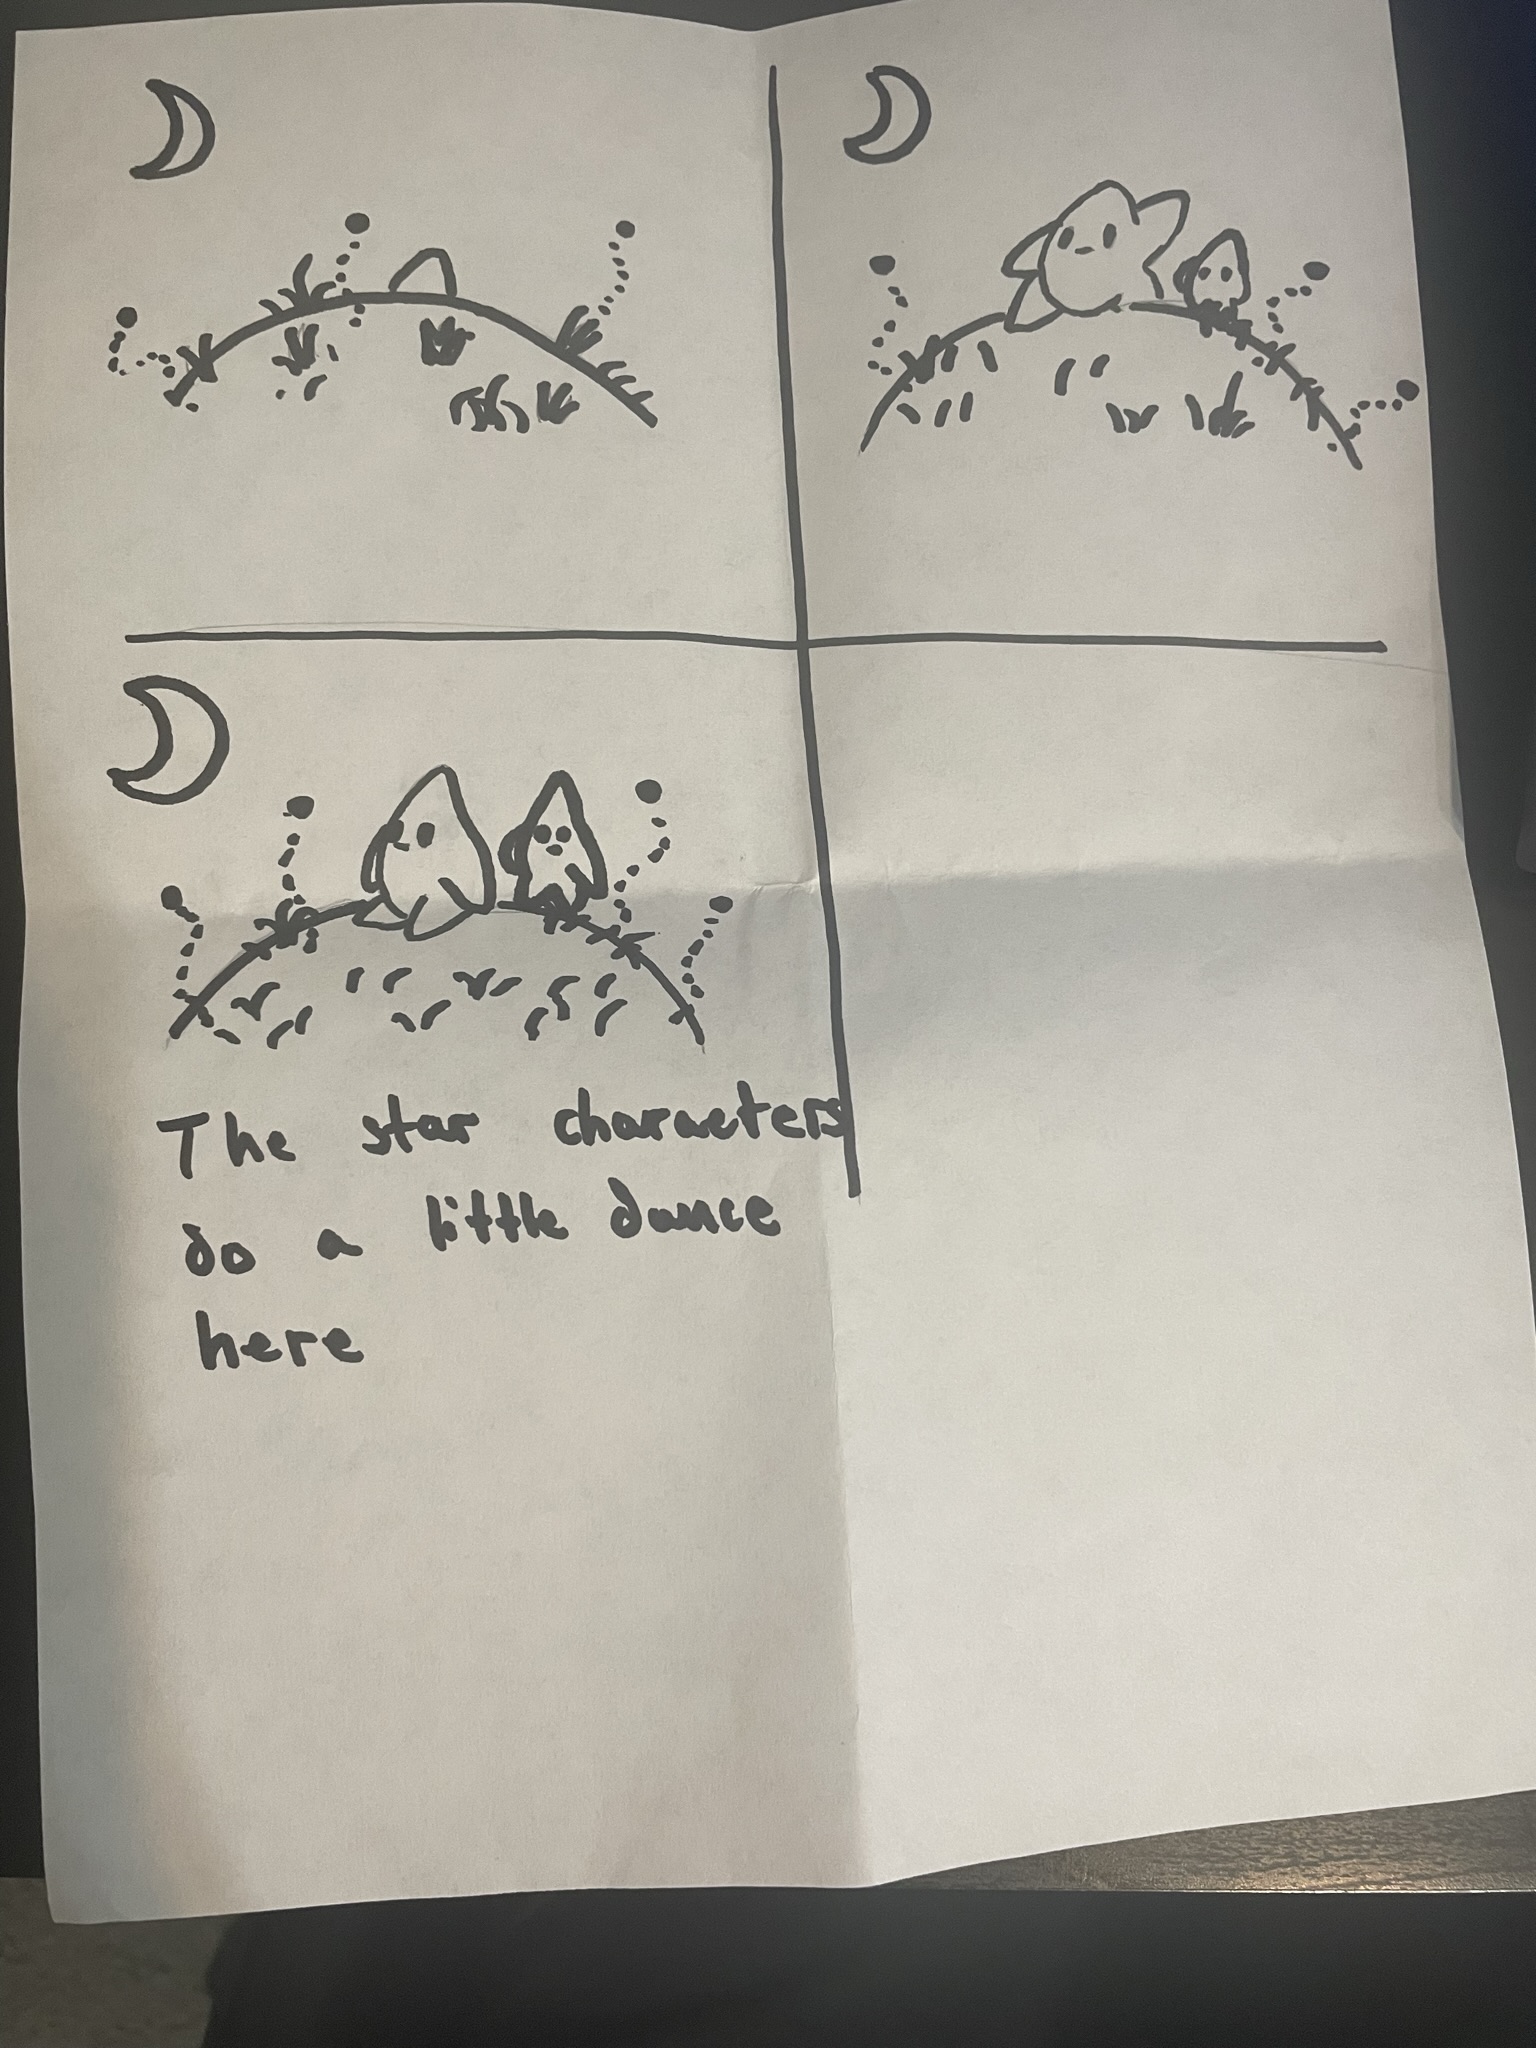 The star characters
do a little dance
here